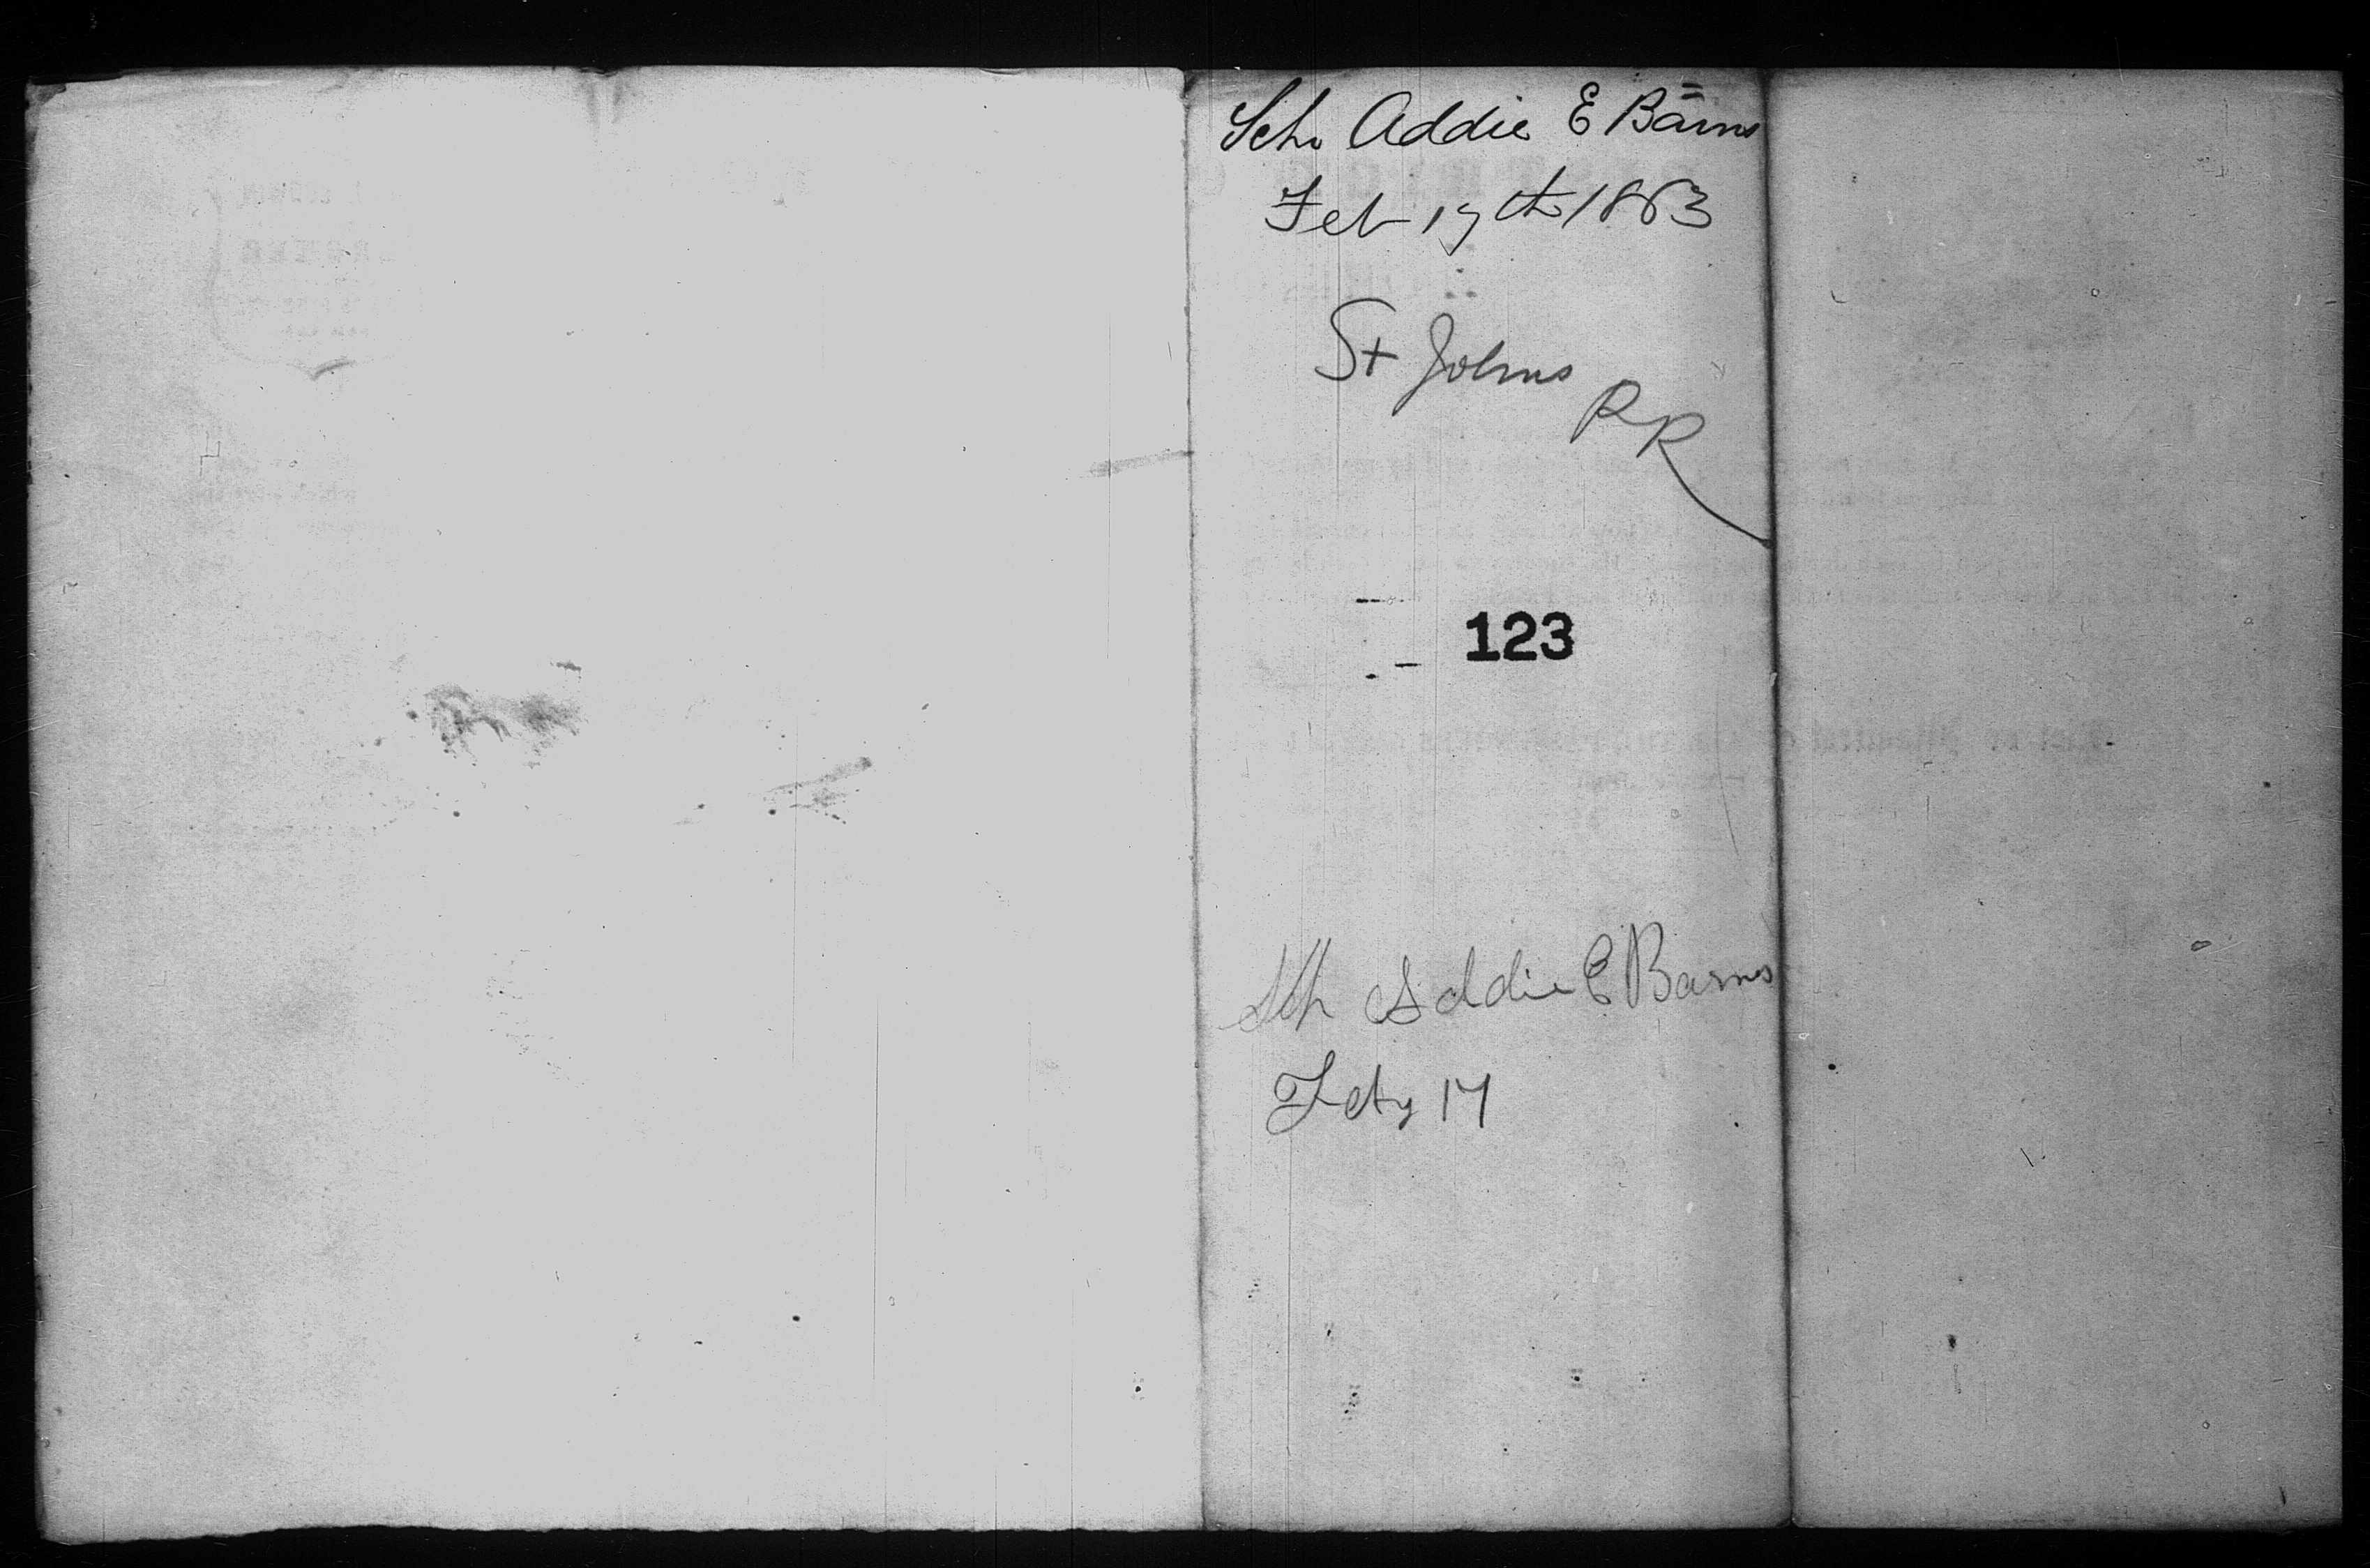 Sch. Addie E Barns
Feb 17th 1863
St Johns
RR
123
Sch Addie E Barns
Feby 17